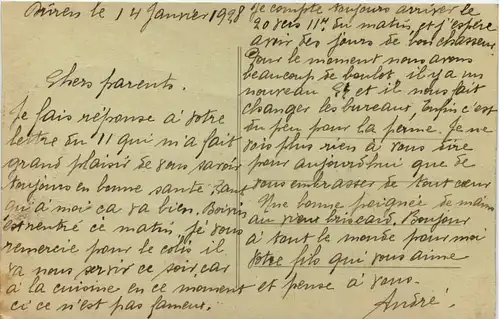 Düren le 14 Janvier 1928
Chers parents.
Je fais réponse à votre
lettre du 11 qui m'a fait
grand plaisir de vous savoir
toujours en bonne santé. Quant
qu'à moi ca va bien. Boivin
est rentré ce matin, je vous
remercie pour le colis il
va nous servir ce soir car
à la cuisine en ce moment
ci ce n'est pas fameux.
Je compte toujours arriver le
20 vers 11h du matin, et j'espère
avoir des jours de bon chasseur.
Pour le moment nous avons
beaucoup de boulot il y a un
nouveau et il nous fait
changer les bureaux, Enfin c'est
du peu pour la peine. Je ne
vois plus rien à vous dire
pour aujourd'hui que de
vous embrasser de tout cœur
Une bonne poignée de mains
au vieux briscard. Bonjour
à tout le monde pour moi
Votre fils qui vous aime
et pense à vous.
André.